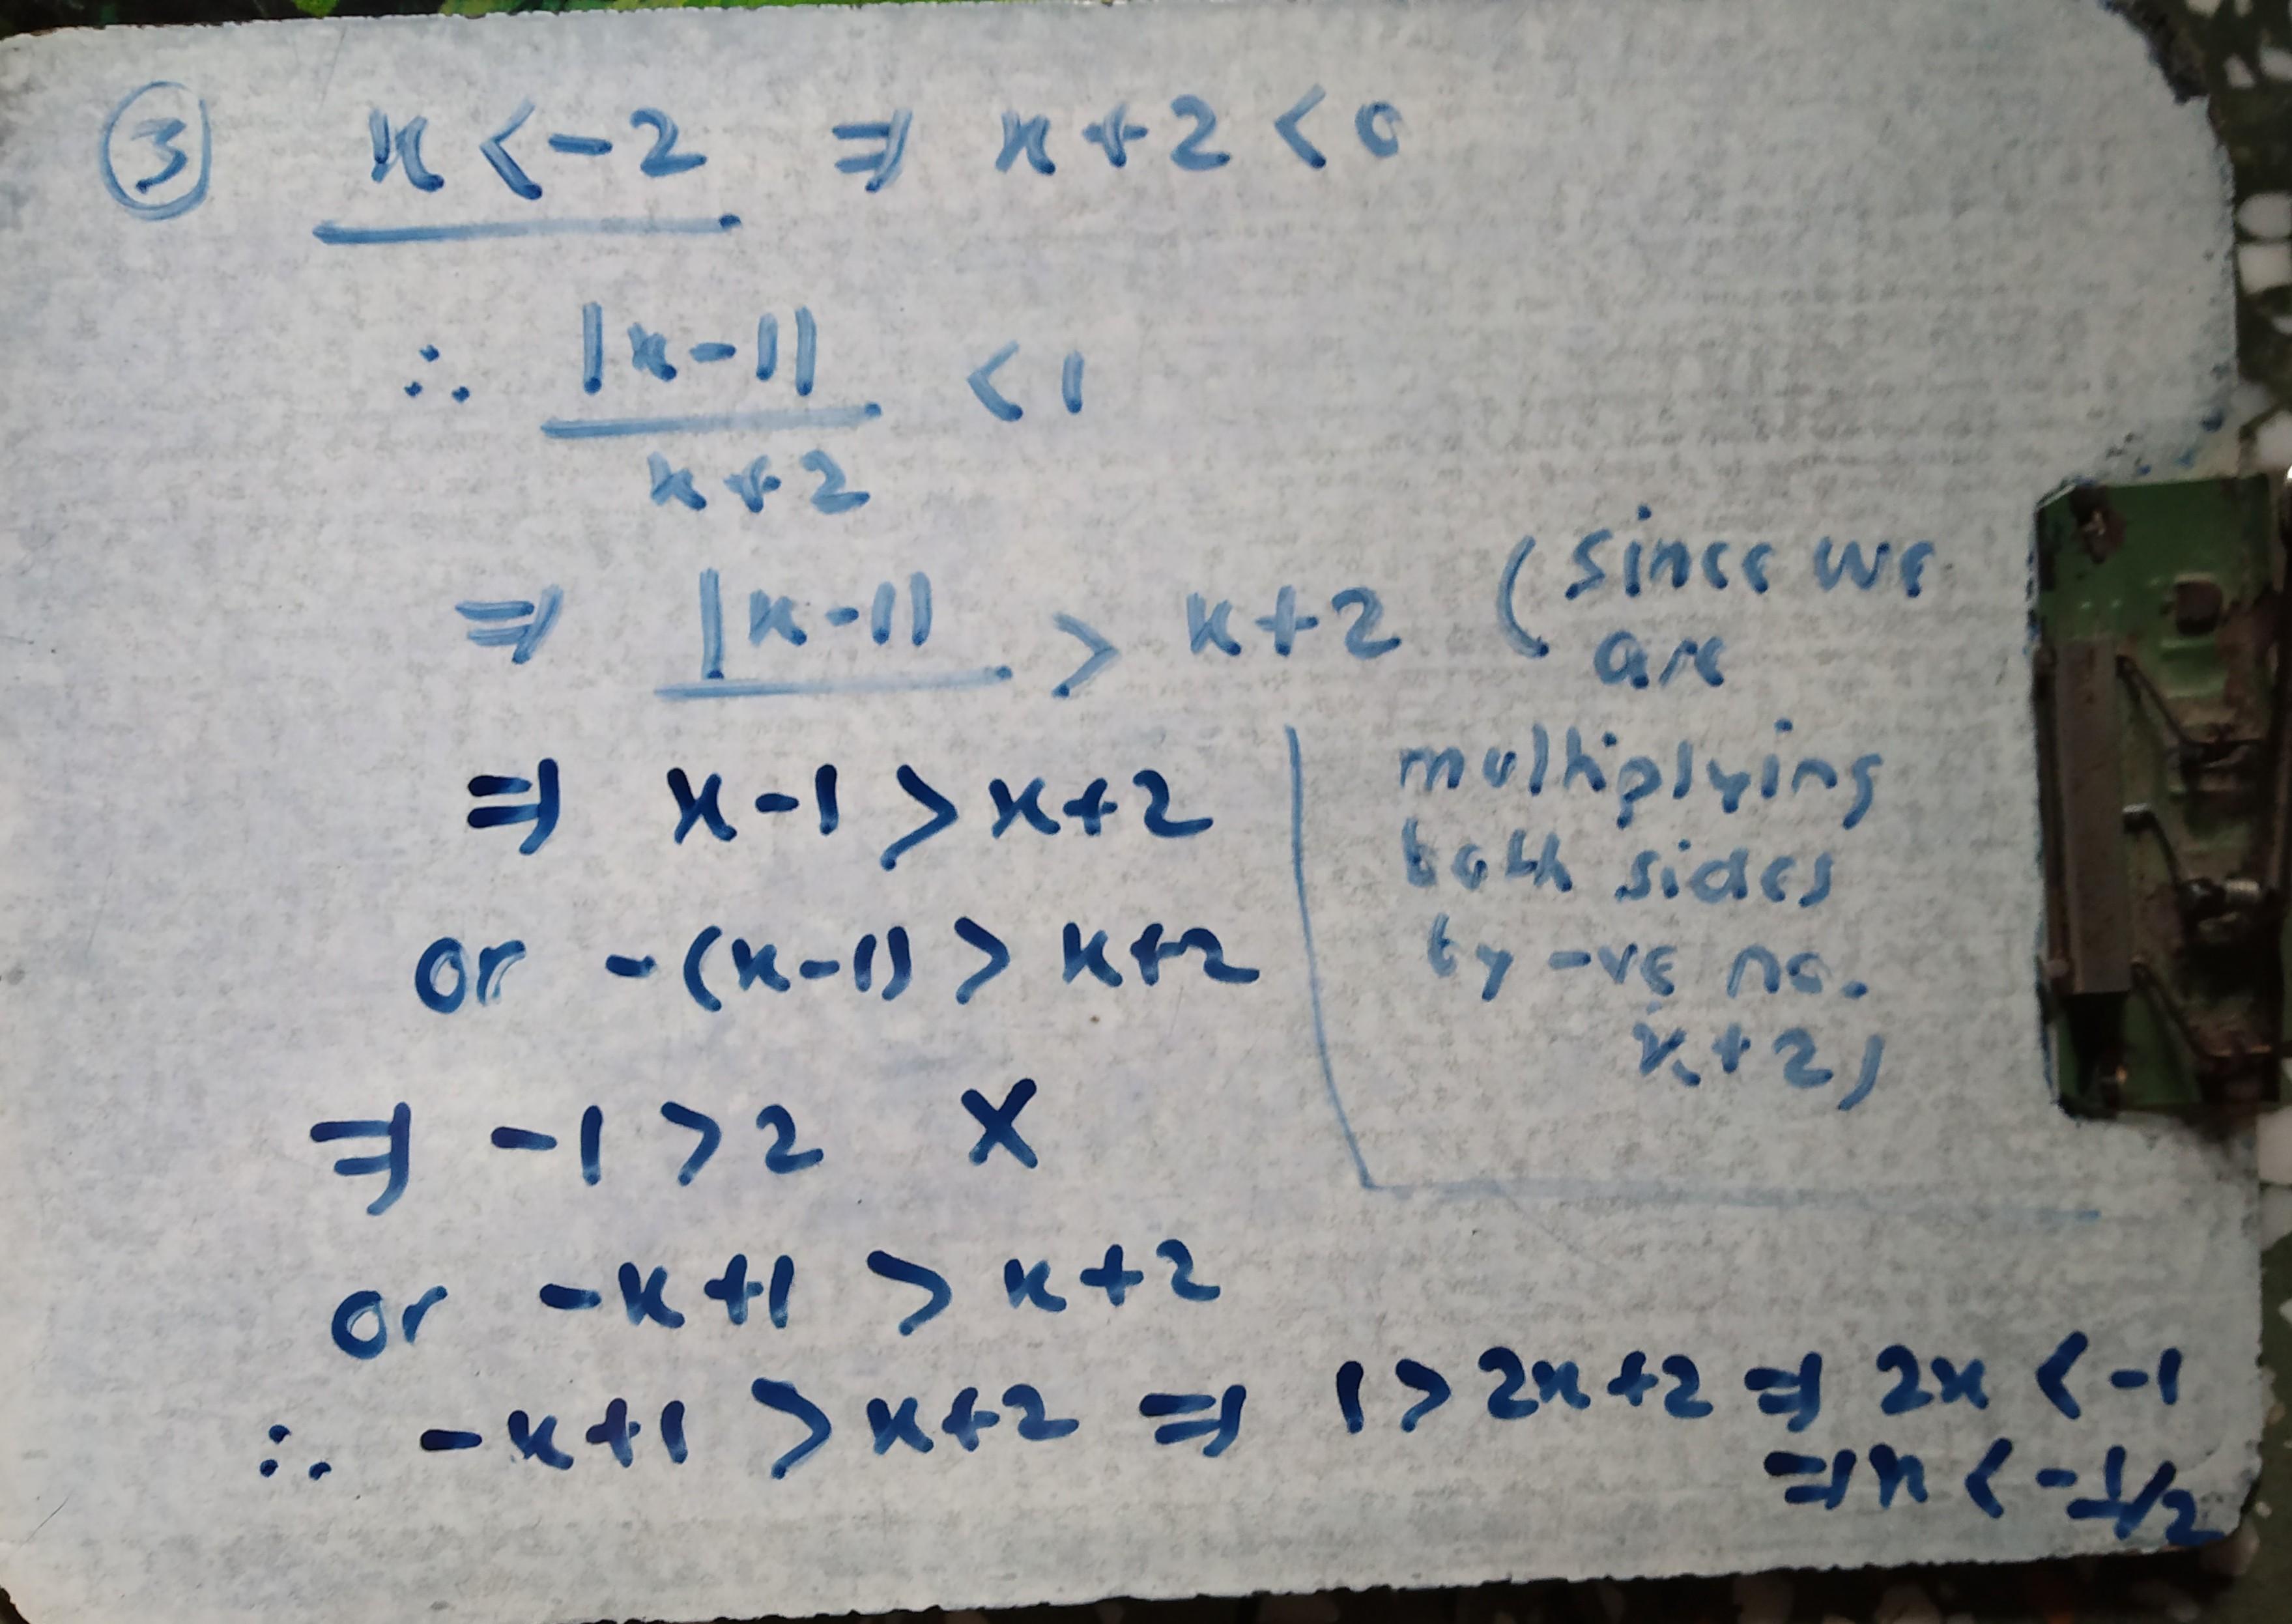 ③ x < -2 ⇒ x+2 < 0
∴ |x-1|
x+2 < 1
⇒ |x-1| > x+2 (since we
are
multiplying
both sides
by -ve no.
x+2)
⇒ x-1 > x+2
or -(x-1) > x+2
⇒ -1 > 2 X
or -x+1 > x+2
∴ -x+1 > x+2 ⇒ 1 > 2x+2 ⇒ 2x < -1
⇒ x < -1/2